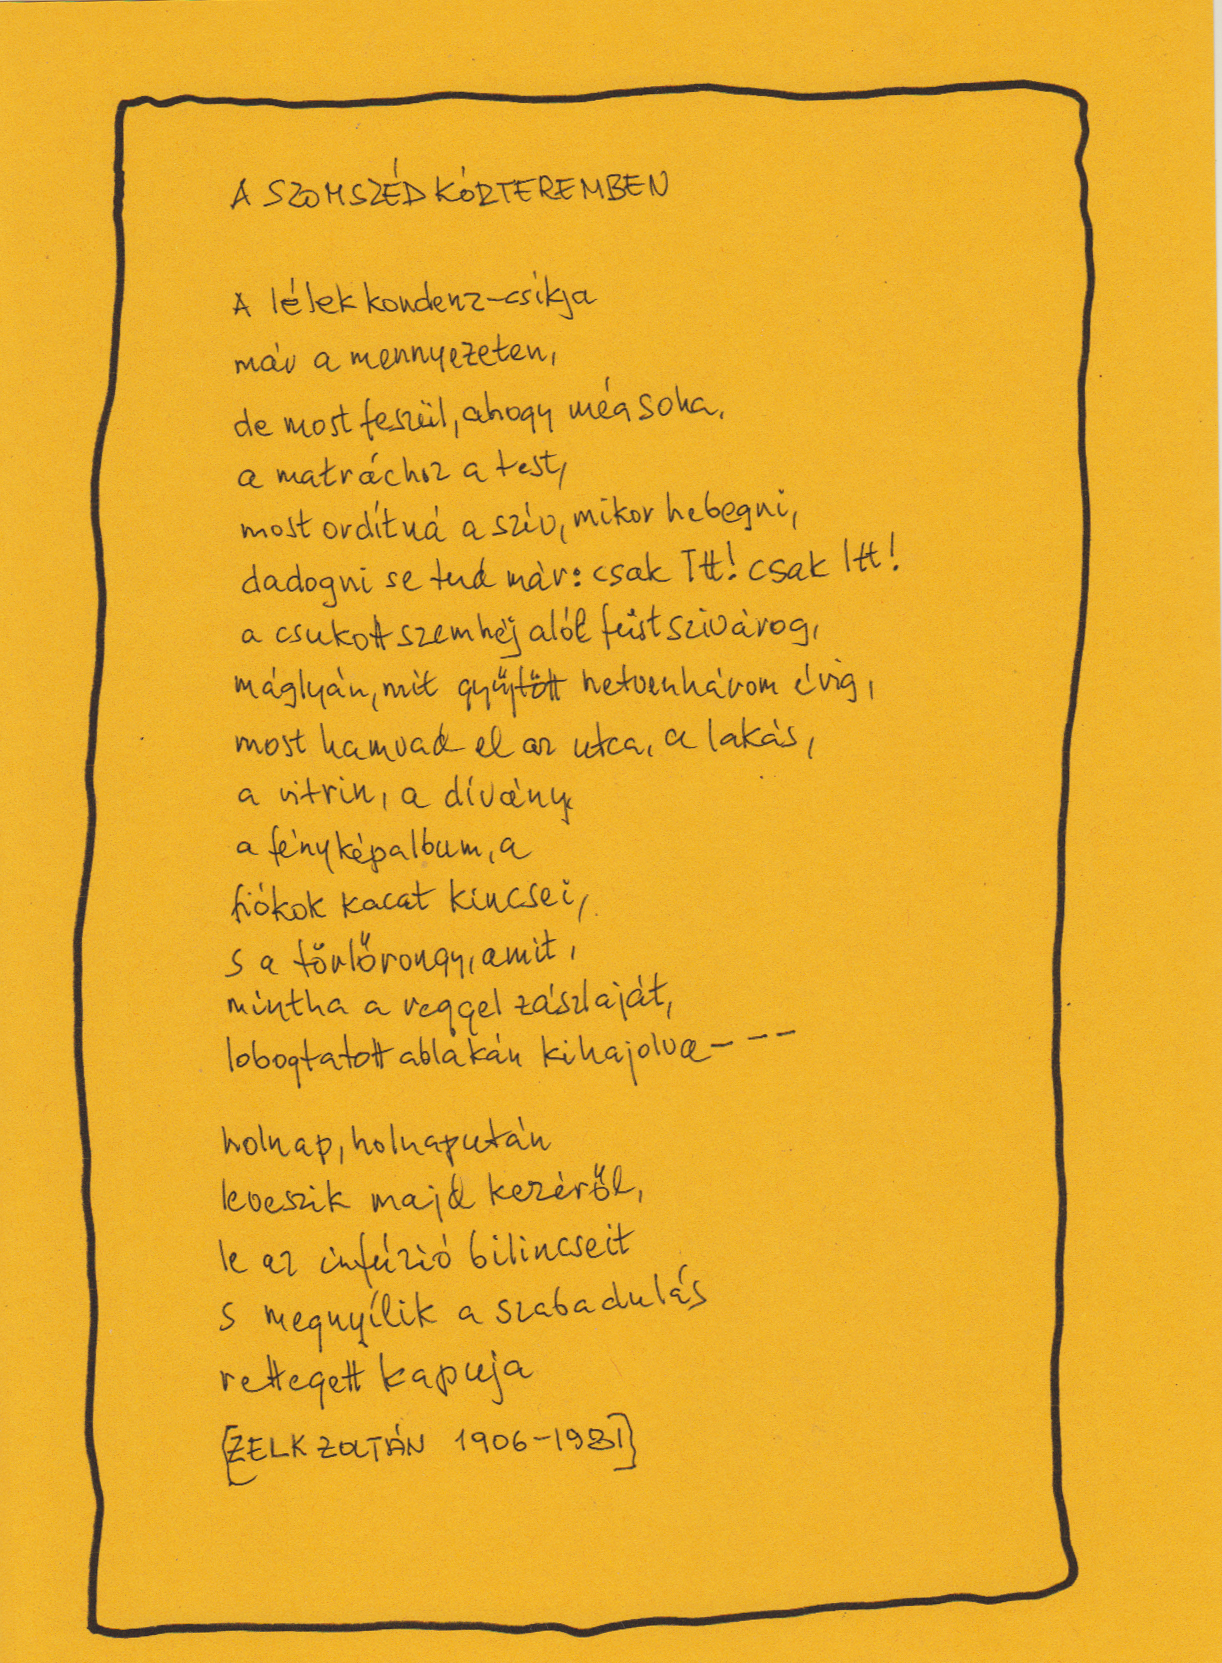 A SZOMSZÉD KÓRTEREMBEN
A lélek kondenz-csíkja
már a mennyezeten,
de most feszül, ahogy még soha,
a matrachoz a test,
most ordítná a szív, mikor hebegni,
dadogni se tud már: csak Itt! csak Itt!
a csukott szemhéj alól füst szivárog,
máglyán, mit gyűjtött hetvenhárom évig,
most hamvad el az utca, a lakás,
a vitrin, a dívány,
a fényképalbum, a
fiókok kacat kincsei,
s a törlőrongy, amit,
mintha a reggel zászlaját,
lobogtatott ablakán kihajolva - - - -
holnap, holnapután
leveszik majd kezéről,
le az infúzió bilincseit
s megnyílik a szabadulás
rettegett kapuja
[ZELK ZOLTÁN 1906-1981]